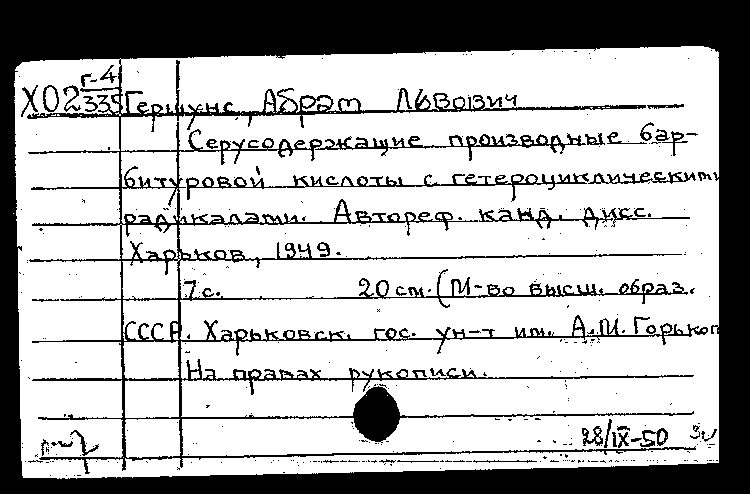 Х02 Г-4
335 Гершунс, Абрам Львович
Серусодержащие производные бар-
битуровой кислоты с гетероциклическими
радикалами. Автореф. канд. дисс.
Харьков, 1949.
7с. 20 см. (М-во высш. образ.
СССР. Харьковск. гос. ун-т им. А.М. Горьког
На правах рукописи.
28/IX-50